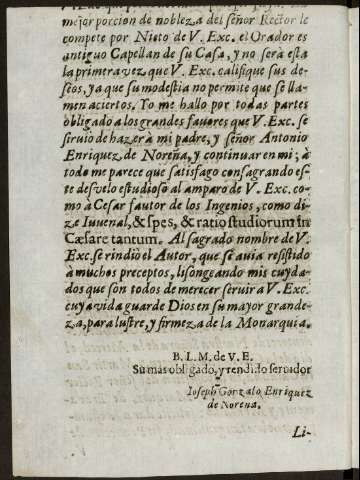 mejor porcion de nobleza del señor Rector le
compete por Nieto de V. Exc. el Orador es
antiguo Capellan de su Casa, y no serà esta
la primera vez, que V. Exc. califique sus de-
seos, ya que su modestia no permite que se lla-
men aciertos. Yo me hallo por todas partes
obligado a los grandes favores que V. Exc. se
siruio de hazer à mi padre, y señor Antonio
Enriquez de Noreña, y continuar en mi; à
todo me parece que satisfago consagrando es-
te desvelo estudioso al amparo de V. Exc. co-
mo à Cesar fautor de los Ingenios, como di-
ze Iuvenal, & spes, & ratio studiorum in
Cæsare tantum. Al sagrado nombre de V.
Exc. se rindiò el Autor, que se auia resistido
à muchos preceptos, lisongeando mis cuyda-
dos que son todos de merecer seruir a V. Exc.
cuya vida guarde Dios en su mayor grande-
za, para lustre, y firmeza de la Monarquia.
B. L. M. de V. E.
Su mas obligado, y rendido seruidor
Ioseph Gonzalo Enriquez
de Norena.
Li-